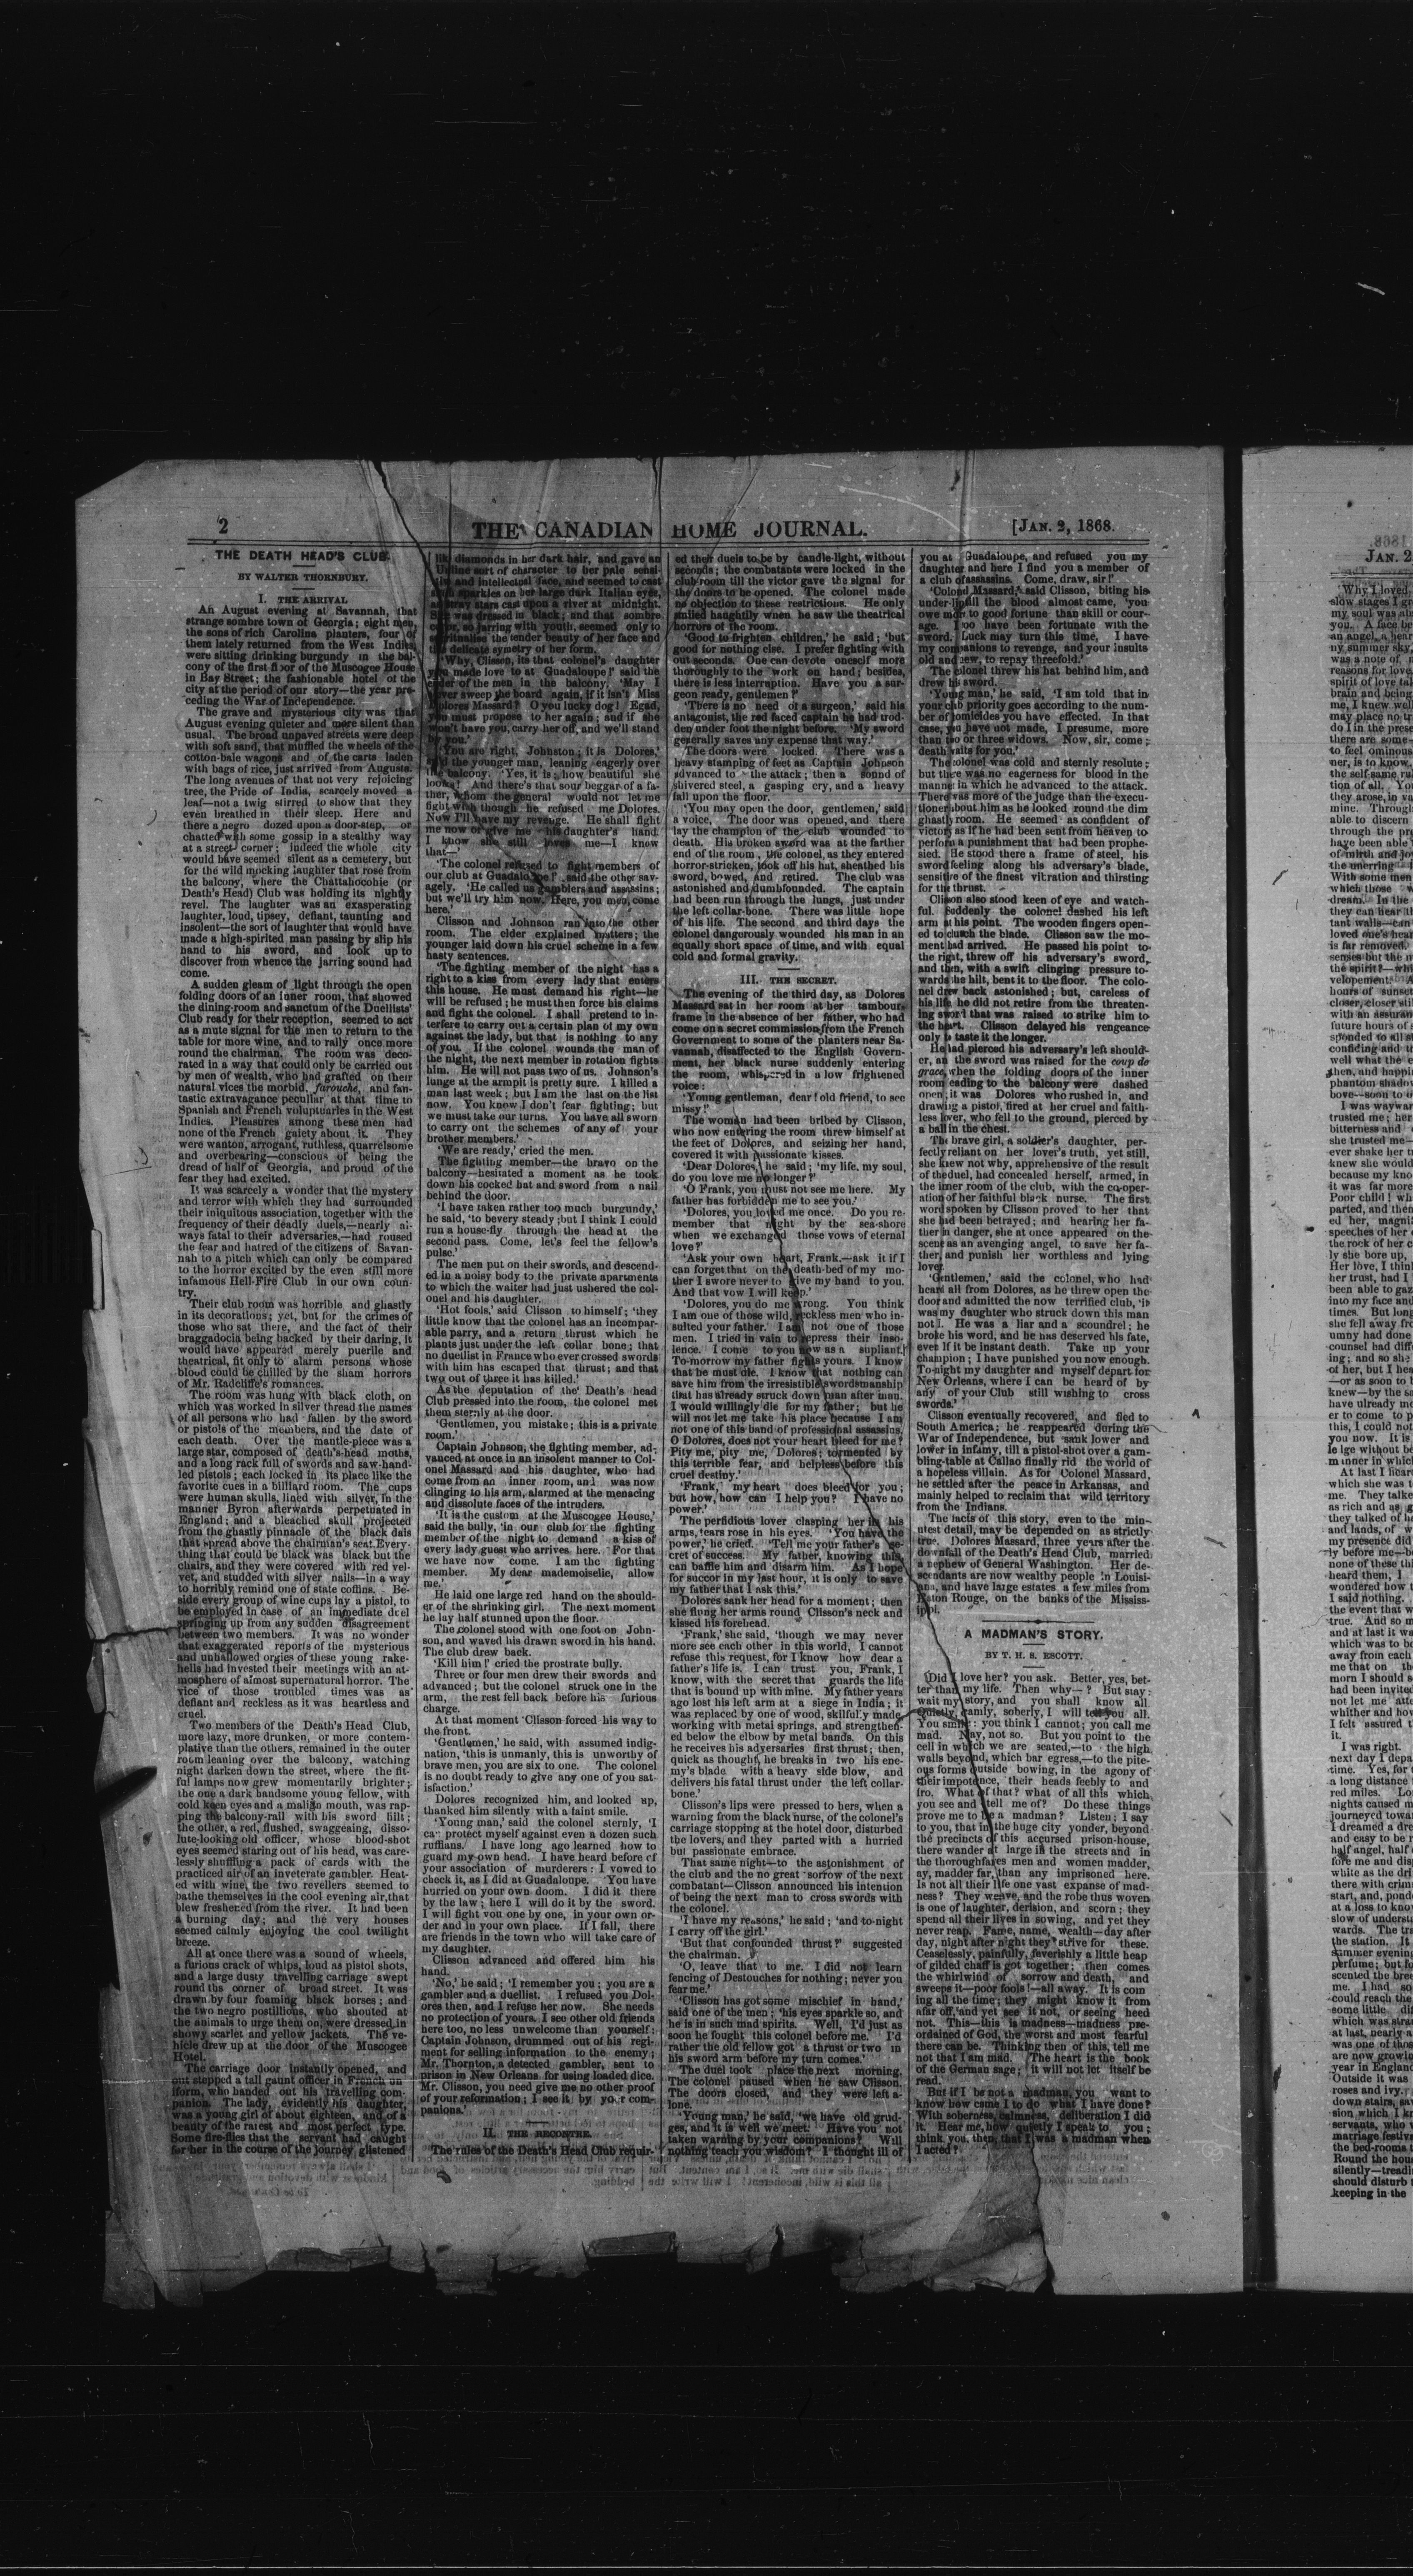 2
THE CANADIAN HOME JOURNAL.
[JAN. 2, 1868.
THE DEATH HEAD'S CLUB.
BY WALTER THORNBURY.
I. THE ARRIVAL
An August evening at Savannah, that
strange sombre town of Georgia; eight men,
the sons of rich Carolina planters, four of
them lately returned from the West Indies
were sitting drinking burgundy in the bal-
cony of the first floor of the Muscogee House
in Bay Street; the fashionable hotel of the
city at the period of our story—the year pre-
ceding the War of Independence.
The grave and mysterious city was that
August evening quieter and more silent than
usual. The broad unpaved streets were deep
with soft sand, that muffled the wheels of the
cotton-bale wagons and of the carts laden
with bags of rice, just arrived from Augusta.
The long avenues of that not very rejoicing
tree, the Pride of India, scarcely moved a
leaf—not a twig stirred to show that they
even breathed in their sleep. Here and
there a negro dozed upon a door-step, or
chatted with some gossip in a stealthy way
at a street corner; indeed the whole city
would have seemed silent as a cemetery, but
for the wild mocking laughter that rose from
the balcony, where the Chattahoochie (or
Death's Head) Club was holding its nightly
revel. The laughter was an exasperating
laughter, loud, tipsey, defiant, taunting and
insolent—the sort of laughter that would have
made a high-spirited man passing by slip his
hand to his sword, and look up to
discover from whence the jarring sound had
come.
A sudden gleam of light through the open
folding doors of an inner room, that showed
the dining-room and sanctum of the Duellists'
Club ready for their reception, seemed to act
as a mute signal for the men to return to the
table for more wine, and to rally once more
round the chairman. The room was deco-
rated in a way that could only be carried out
by men of wealth, who had grafted on their
natural vices the morbid, farouche, and fan-
tastic extravagance peculiar at that time to
Spanish and French voluptuaries in the West
Indies. Pleasures among these men had
none of the French gaiety about it. They
were wanton, arrogant, ruthless, quarrelsome
and overbearing—conscious of being the
dread of half of Georgia, and proud of the
fear they had excited.
It was scarcely a wonder that the mystery
and terror with which they had surrounded
their iniquitous association, together with the
frequency of their deadly duels,—nearly al-
ways fatal to their adversaries,—had roused
the fear and hatred of the citizens of Savan-
nah to a pitch which can only be compared
to the horror excited by the even still more
infamous Hell-Fire Club in our own coun-
try.
Their club room was horrible and ghastly
in its decorations; yet, but for the crimes of
those who sat there, and the fact of their
braggadocia being backed by their daring, it
would have appeared merely puerile and
theatrical, fit only to alarm persons whose
blood could be chilled by the sham horrors
of Mr. Radcliffe's romances.
The room was hung with black cloth, on
which was worked in silver thread the names
of all persons who had fallen by the sword
or pistols of the members, and the date of
each death. Over the mantle-piece was a
large star, composed of death's-head moths,
and a long rack full of swords and saw-hand-
led pistols; each locked in its place like the
favorite cues in a billiard room. The cups
were human skulls, lined with silver, in the
manner Byron afterwards perpetuated in
England; and a bleached skull projected
from the ghastly pinnacle of the black dais
that spread above the chairman's seat. Every-
thing that could be black was black but the
chairs, and they were covered with red vel-
vet, and studded with silver nails—in a way
to horribly remind one of state coffins. Be-
side every group of wine cups lay a pistol, to
be employed in case of an immediate duel
springing up from any sudden disagreement
between two members. It was no wonder
that exaggerated reports of the mysterious
and unhallowed orgies of these young rake-
hells had invested their meetings with an at-
mosphere of almost supernatural horror. The
vice of those troubled times was as
defiant and reckless as it was heartless and
cruel.
Two members of the Death's Head Club,
more lazy, more drunken, or more contem-
plative than the others, remained in the outer
room leaning over the balcony, watching
night darken down the street, where the fit-
ful lamps now grew momentarily brighter;
the one a dark handsome young fellow, with
cold keen eyes and a malign mouth, was rap-
ping the balcony-rail with his sword hilt;
the other, a red, flushed, swaggeaing, disso-
lute-looking old officer, whose blood-shot
eyes seemed staring out of his head, was care-
lessly shuffling a pack of cards with the
practiced air of an inveterate gambler. Heat-
ed with wine, the two revellers seemed to
bathe themselves in the cool evening air, that
blew freshened from the river. It had been
a burning day; and the very houses
seemed calmly enjoying the cool twilight
breeze.
All at once there was a sound of wheels,
a furious crack of whips, loud as pistol shots,
and a large dusty travelling carriage swept
round the corner of broad street. It was
drawn by four foaming black horses; and
the two negro postillions, who shouted at
the animals to urge them on, were dressed in
showy scarlet and yellow jackets. The ve-
hicle drew up at the door of the Muscogee
Hotel.
The carriage door instantly opened, and
out stepped a tall gaunt officer in French un
iform, who handed out his travelling com-
panion. The lady, evidently his daughter,
was a young girl of about eighteen, and of a
beauty of the rarest and most perfect type.
Some fire-flies that the servant had caught
for her in the course of the journey, glistened
like diamonds in her dark hair, and gave an
Undine sort of character to her pale sensi-
tive and intellectual face, and seemed to cast
sparkles on her large dark Italian eyes,
as stray stars cast upon a river at midnight.
She was dressed in black; and that sombre
color, so jarring with youth, seemed only to
spiritualise the tender beauty of her face and
the delicate symetry of her form.
'Why, Clisson, its that colonel's daughter
you made love to at Guadaloupe!' said the
elder of the men in the balcony. 'May I
never sweep the board again, if it isn't Miss
Dolores Massard? O you lucky dog! Egad,
you must propose to her again; and if she
won't have you, carry her off, and we'll stand
by you.'
'You are right, Johnston; it is Dolores,'
said the younger man, leaning eagerly over
the balcony. 'Yes, it is; how beautiful she
looks! And there's that sour beggar of a fa-
ther, whom the general would not let me
fight with though he refused me Dolores.
Now I'll have my revenge. He shall fight
me now or give me his daughter's hand.
I know she still loves me—I know
that—'
'The colonel refused to fight members of
our club at Guadaloupe!' said the other sav-
agely. 'He called us gamblers and assassins;
but we'll try him now. Here, you men, come
here.'
Clisson and Johnson ran into the other
room. The elder explained matters; the
younger laid down his cruel scheme in a few
hasty sentences.
'The fighting member of the night has a
right to a kiss from every lady that enters
this house. He must demand his right—he
will be refused; he must then force his claims
and fight the colonel. I shall pretend to in-
terfere to carry out a certain plan of my own
against the lady, but that is nothing to any
of you. If the colonel wounds the man of
the night, the next member in rotation fights
him. He will not pass two of us. Johnson's
lunge at the armpit is pretty sure. I killed a
man last week; but I am the last on the list
now. You know I don't fear fighting; but
we must take our turns. You have all sworn
to carry ont the schemes of any of your
brother members.'
'We are ready,' cried the men.
The fighting member—the bravo on the
balcony—hesitated a moment as he took
down his cocked hat and sword from a nail
behind the door.
'I have taken rather too much burgundy,'
he said, 'to bevery steady; but I think I could
run a house-fly through the head at the
second pass. Come, let's feel the fellow's
pulse.'
The men put on their swords, and descend-
ed in a noisy body to the private apartments
to which the waiter had just ushered the col-
onel and his daughter.
'Hot fools,' said Clisson to himself; 'they
little know that the colonel has an incompar-
able parry, and a return thrust which he
plants just under the left collar bone; that
no duellist in France who ever crossed swords
with him has escaped that thrust; and that
two out of three it has killed.'
As the deputation of the Death's head
Club pressed into the room, the colonel met
them sternly at the door.
'Gentlemen, you mistake; this is a private
room.'
Captain Johnson, the fighting member, ad-
vanced at once in an insolent manner to Col-
onel Massard and his daughter, who had
come from an inner room, and was now
clinging to his arm, alarmed at the menacing
and dissolute faces of the intruders.
'It is the custom at the Muscogee House,'
said the bully, 'in our club for the fighting
member of the night to demand a kiss of
every lady guest who arrives here. For that
we have now come. I am the fighting
member. My dear mademoiselie, allow
me.'
He laid one large red hand on the should-
er of the shrinking girl. The next moment
he lay half stunned upon the floor.
The colonel stood with one foot on John-
son, and waved his drawn sword in his hand.
The club drew back.
'Kill him!' cried the prostrate bully.
Three or four men drew their swords and
advanced; but the colonel struck one in the
arm, the rest fell back before his furious
charge.
At that moment Clisson forced his way to
the front.
'Gentlemen,' he said, with assumed indig-
nation, 'this is unmanly, this is unworthy of
brave men, you are six to one. The colonel
is no doubt ready to give any one of you sat-
isfaction.'
Dolores recognized him, and looked up,
thanked him silently with a faint smile.
'Young man,' said the colonel sternly, 'I
can protect myself against even a dozen such
ruffians. I have long ago learned how to
guard my own head. I have heard before of
your association of murderers: I vowed to
check it, as I did at Guadaloupe. You have
hurried on your own doom. I did it there
by the law; here I will do it by the sword.
I will fight you one by one, in your own or-
der and in your own place. If I fall, there
are friends in the town who will take care of
my daughter.
Clisson advanced and offered him his
hand.
'No,' he said; 'I remember you; you are a
gambler and a duellist. I refused you Dol-
ores then, and I refuse her now. She needs
no protection of yours. I see other old friends
here too, no less unwelcome than yourself:
Captain Johnson, drummed out of his regi-
ment for selling information to the enemy;
Mr. Thornton, a detected gambler, sent to
prison in New Orleans for using loaded dice.
Mr. Clisson, you need give me no other proof
of your reformation; I see it by your com-
panions.'
II. THE RECONTRE.
The rules of the Death's Head Club requir-
ed their duels to be by candle-light, without
seconds; the combatants were locked in the
club room till the victor gave the signal for
the doors to be opened. The colonel made
no objection to these restrictions. He only
smiled haughtily when he saw the theatrical
horrors of the room.
'Good to frighten children,' he said; 'but
good for nothing else. I prefer fighting with
out seconds. One can devote oneself more
thoroughly to the work on hand; besides,
there is less interruption. Have you a sur-
geon ready, gentlemen?'
'There is no need of a surgeon,' said his
antagonist, the red faced captain he had trod-
den under foot the night before. 'My sword
generally saves any expense that way.'
The doors were locked. There was a
heavy stamping of feet as Captain Johnson
advanced to the attack; then a sound of
shivered steel, a gasping cry, and a heavy
fall upon the floor.
'You may open the door, gentlemen,' said
a voice, The door was opened, and there
lay the champion of the club wounded to
death. His broken sword was at the farther
end of the room, the colonel, as they entered
horror-stricken, took off his hat, sheathed his
sword, bowed, and retired. The club was
astonished and dumbfounded. The captain
had been run through the lungs, just under
the left collar-bone. There was little hope
of his life. The second and third days the
colonel dangerously wounded his man in an
equally short space of time, and with equal
cold and formal gravity.
III. THE SECRET.
The evening of the third day, as Dolores
Massard sat in her room at her tambour-
frame in the absence of her father, who had
come on a secret commission from the French
Government to some of the planters near Sa-
vannah, disaffected to the English Govern-
ment, her black nurse suddenly entering
the room, whispered in a low frightened
voice:
'Young gentleman, dear! old friend, to see
missy!'
The woman had been bribed by Clisson,
who now entering the room threw himself at
the feet of Dolores, and seizing her hand,
covered it with passionate kisses.
'Dear Dolores,' he said; 'my life, my soul,
do you love me no longer?'
'O Frank, you must not see me here. My
father has forbidden me to see you.'
'Dolores, you loved me once. Do you re-
member that night by the sea-shore
when we exchanged those vows of eternal
love?'
'Ask your own heart, Frank.—ask it if I
can forget that on the death-bed of my mo-
ther I swore never to give my hand to you.
And that vow I will keep.'
'Dolores, you do me wrong. You think
I am one of those wild, reckless men who in-
sulted your father. I am not one of those
men. I tried in vain to repress their inso-
lence. I come to you now as a supliant.
To-morrow my father fights yours. I know
that he must die. I know that nothing can
save him from the irresistible swordsmanship
that has already struck down man after man.
I would willingly die for my father; but he
will not let me take his place because I am
not one of this band of professional assassins.
O Dolores, does not your heart bleed for me?
Pity me, pity me, Dolores; tormented by
this terrible fear, and helpless before this
cruel destiny.'
'Frank,' my heart does bleed for you;
but how, how can I help you? I have no
power.'
The perfidious lover clasping her in his
arms, tears rose in his eyes. 'You have the
power,' he cried. 'Tell me your father's se-
cret of success. My father, knowing this,
can baffle him and disarm him. As I hope
for succor in my last hour, it is only to save
my father that I ask this.'
Dolores sank her head for a moment; then
she flung her arms round Clisson's neck and
kissed his forehead.
'Frank,' she said, 'though we may never
more see each other in this world, I cannot
refuse this request, for I know how dear a
father's life is. I can trust you, Frank, I
know, with the secret that guards the life
that is bound up with mine. My father years
ago lost his left arm at a siege in India; it
was replaced by one of wood, skilfully made,
working with metal springs, and strengthen-
ed below the elbow by metal bands. On this
he receives his adversaries first thrust; then,
quick as thought, he breaks in two his ene-
my's blade with a heavy side blow, and
delivers his fatal thrust under the left collar-
bone.'
Clisson's lips were pressed to hers, when a
warning from the black nurse, of the colonel's
carriage stopping at the hotel door, disturbed
the lovers, and they parted with a hurried
but passionate embrace.
That same night—to the astonishment of
the club and the no great sorrow of the next
combatant—Clisson announced his intention
of being the next man to cross swords with
the colonel.
'I have my reasons,' he said; 'and to-night
I carry off the girl.'
'But that confounded thrust?' suggested
the chairman.
'O, leave that to me. I did not learn
fencing of Destouches for nothing; never you
fear me.'
'Clisson has got some mischief in hand,'
said one of the men; 'his eyes sparkle so, and
he is in such mad spirits. Well, I'd just as
soon he fought this colonel before me. I'd
rather the old fellow got a thrust or two in
his sword arm before my turn comes.'
The duel took place the next morning.
The colonel paused when he saw Clisson.
The doors closed, and they were left a-
lone.
'Young man,' he said, 'we have old grud-
ges, and it is well we meet. Have you not
taken warning by your companions? Will
nothing teach you wisdom? I thought ill of
you at Guadaloupe, and refused you my
daughter and here I find you a member of
a club of assassins. Come, draw, sir!'
'Colonel Massard,' said Clisson, biting his
under-lip till the blood almost came, 'you
owe more to good fortune than skill or cour-
age. Too have been fortunate with the
sword. Luck may turn this time, I have
my companions to revenge, and your insults
old and new, to repay threefold.'
The colonel threw his hat behind him, and
drew his sword.
'Young man,' he said, 'I am told that in
your club priority goes according to the num-
ber of homicides you have effected. In that
case, you have not made, I presume, more
than two or three widows. Now, sir, come;
death waits for you.'
The colonel was cold and sternly resolute;
but there was no eagerness for blood in the
manner in which he advanced to the attack.
There was more of the judge than the execu-
tioner about him as he looked round the dim
ghastly room. He seemed as confident of
victory as if he had been sent from heaven to
perform a punishment that had been prophe-
sied. He stood there a frame of steel, his
sword feeling along his adversary's blade,
sensitive of the finest vibration and thirsting
for the thrust.
Clisson also stood keen of eye and watch-
ful. Suddenly the colonel dashed his left
arm at his point. The wooden fingers open-
ed to clutch the blade. Clisson saw the mo-
ment had arrived. He passed his point to
the right, threw off his adversary's sword,
and then, with a swift clinging pressure to-
wards the hilt, bent it to the floor. The colo-
nel drew back astonished; but, careless of
his life, he did not retire from the threaten-
ing sword that was raised to strike him to
the heart. Clisson delayed his vengeance
only to taste it the longer.
He had pierced his adversary's left should-
er, and the sword was raised for the coup de
grace, when the folding doors of the inner
room leading to the balcony were dashed
open; it was Dolores who rushed in, and
drawing a pistol, fired at her cruel and faith-
less lover, who fell to the ground, pierced by
a ball in the chest.
The brave girl, a soldier's daughter, per-
fectly reliant on her lover's truth, yet still,
she knew not why, apprehensive of the result
of the duel, had concealed herself, armed, in
the inner room of the club, with the co-oper-
ation of her faithful black nurse. The first
word spoken by Clisson proved to her that
she had been betrayed; and hearing her fa-
ther in danger, she at once appeared on the
scene as an avenging angel, to save her fa-
ther, and punish her worthless and lying
lover.
'Gentlemen,' said the colonel, who had
heard all from Dolores, as he threw open the
door and admitted the now terrified club, 'it
was my daughter who struck down this man
not I. He was a liar and a scoundrel; he
broke his word, and he has deserved his fate,
even if it be instant death. Take up your
champion; I have punished you now enough.
To-night my daughter and myself depart for
New Orleans, where I can be heard of by
any of your Club still wishing to cross
swords.'
Clisson eventually recovered, and fled to
South America; he reappeared during the
War of Independence, but sank lower and
lower in infamy, till a pistol-shot over a gam-
bling-table at Callao finally rid the world of
a hopeless villain. As for Colonel Massard,
he settled after the peace in Arkansas, and
mainly helped to reclaim that wild territory
from the Indians.
The facts of this story, even to the min-
utest detail, may be depended on as strictly
true. Dolores Massard, three years after the
downfall of the Death's Head Club, married
a nephew of General Washington. Her de-
scendants are now wealthy people in Louisi-
ana, and have large estates a few miles from
Baton Rouge, on the banks of the Mississ-
ippi.
A MADMAN'S STORY.
BY T. H. S. ESCOTT.
Did I love her? you ask. Better, yes, bet-
ter than my life. Then why—? But stay:
wait my story, and you shall know all.
Quietly, camly, soberly, I will tell you all.
You smile: you think I cannot; you call me
mad. Nay, not so. But you point to the
cell in which we are seated,—to the high
walls beyond, which bar egress,—to the pite-
ous forms outside bowing, in the agony of
their impotence, their heads feebly to and
fro. What of that? what of all this which
you see and tell me of? Do these things
prove me to be a madman? Listen: I say
to you, that in the huge city yonder, beyond
the precincts of this accursed prison-house,
there wander at large in the streets and in
the thoroughfares men and women madder,
ay, madder far, than any imprisoned here.
Is not all their life one vast expanse of mad-
ness? They weave, and the robe thus woven
is one of laughter, derision, and scorn: they
spend all their lives in sowing, and yet they
never reap. Fame, name, wealth—day after
day, night after night they strive for these.
Ceaselessly, painfully, feverishly a little heap
of gilded chaff is got together: then comes
the whirlwind of sorrow and death, and
sweeps it—poor fools!—all away. It is com
ing all the time; they might know it from
afar off, and yet see it not, or seeing heed
not. This—this is madness—madness pre-
ordained of God, the worst and most fearful
there can be. Thinking then of this, tell me
not that I am mad. 'The heart is the book
of the German sage; it will not let itself be
read.
But if I be not a madman, you want to
know how came I to do what I have done?
With soberness, calmness, deliberation I did
it. Hear me, how quietly I speak to you;
think you, then, that I was a madman when
I acted?
JAN. 2